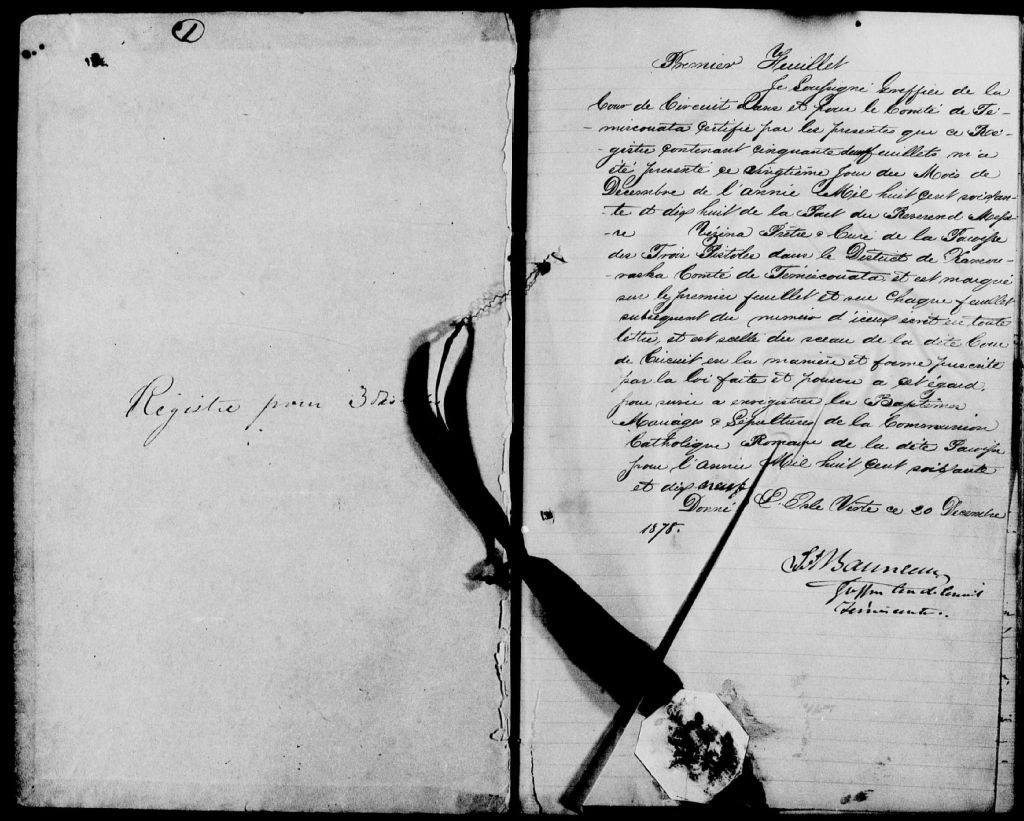 1
Registre pour 3
Premier Feuillet
Je Soussigné Greffier de la
Cour de Circuit dans et pour le Comté de Té-
-misconata certifie par les presentes que ce Re-
-gistre contenant cinquante feuillets m'a
été presenté ce vingtième jour du Mois de
Décembre de l'année Mil huit cent soixan-
-te et dix huit de la Part du Reverend Messi-
-re Vézina Prêtre & Curé de la Paroisse
des Trois Pistoles dans le District de Kamou-
-raska Comté de Témiscouata, et est marqué
sur le premier feuillet et sur chaque feuillet
subsequent du numero d'iceux écrit en toute
lettre, et est scellé du sceau de la dite Cour
de Circuit en la manière et forme prescrite
par la loi faite et pourvue a cet égard,
pour servir a enregistrer les Baptêmes
Mariages & Sépultures de la Communion
Catholique Romaine de la dite Paroisse
pour l'année Mil huit cent soixante
et dix neuf
Donné Isle Verte ce 20 Decembre
1878.